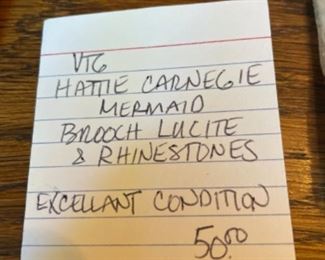 VTG
HATTIE CARNEGIE
MERMAID
BROOCH LUCITE
& RHINESTONES
EXCELLANT CONDITION
50.00